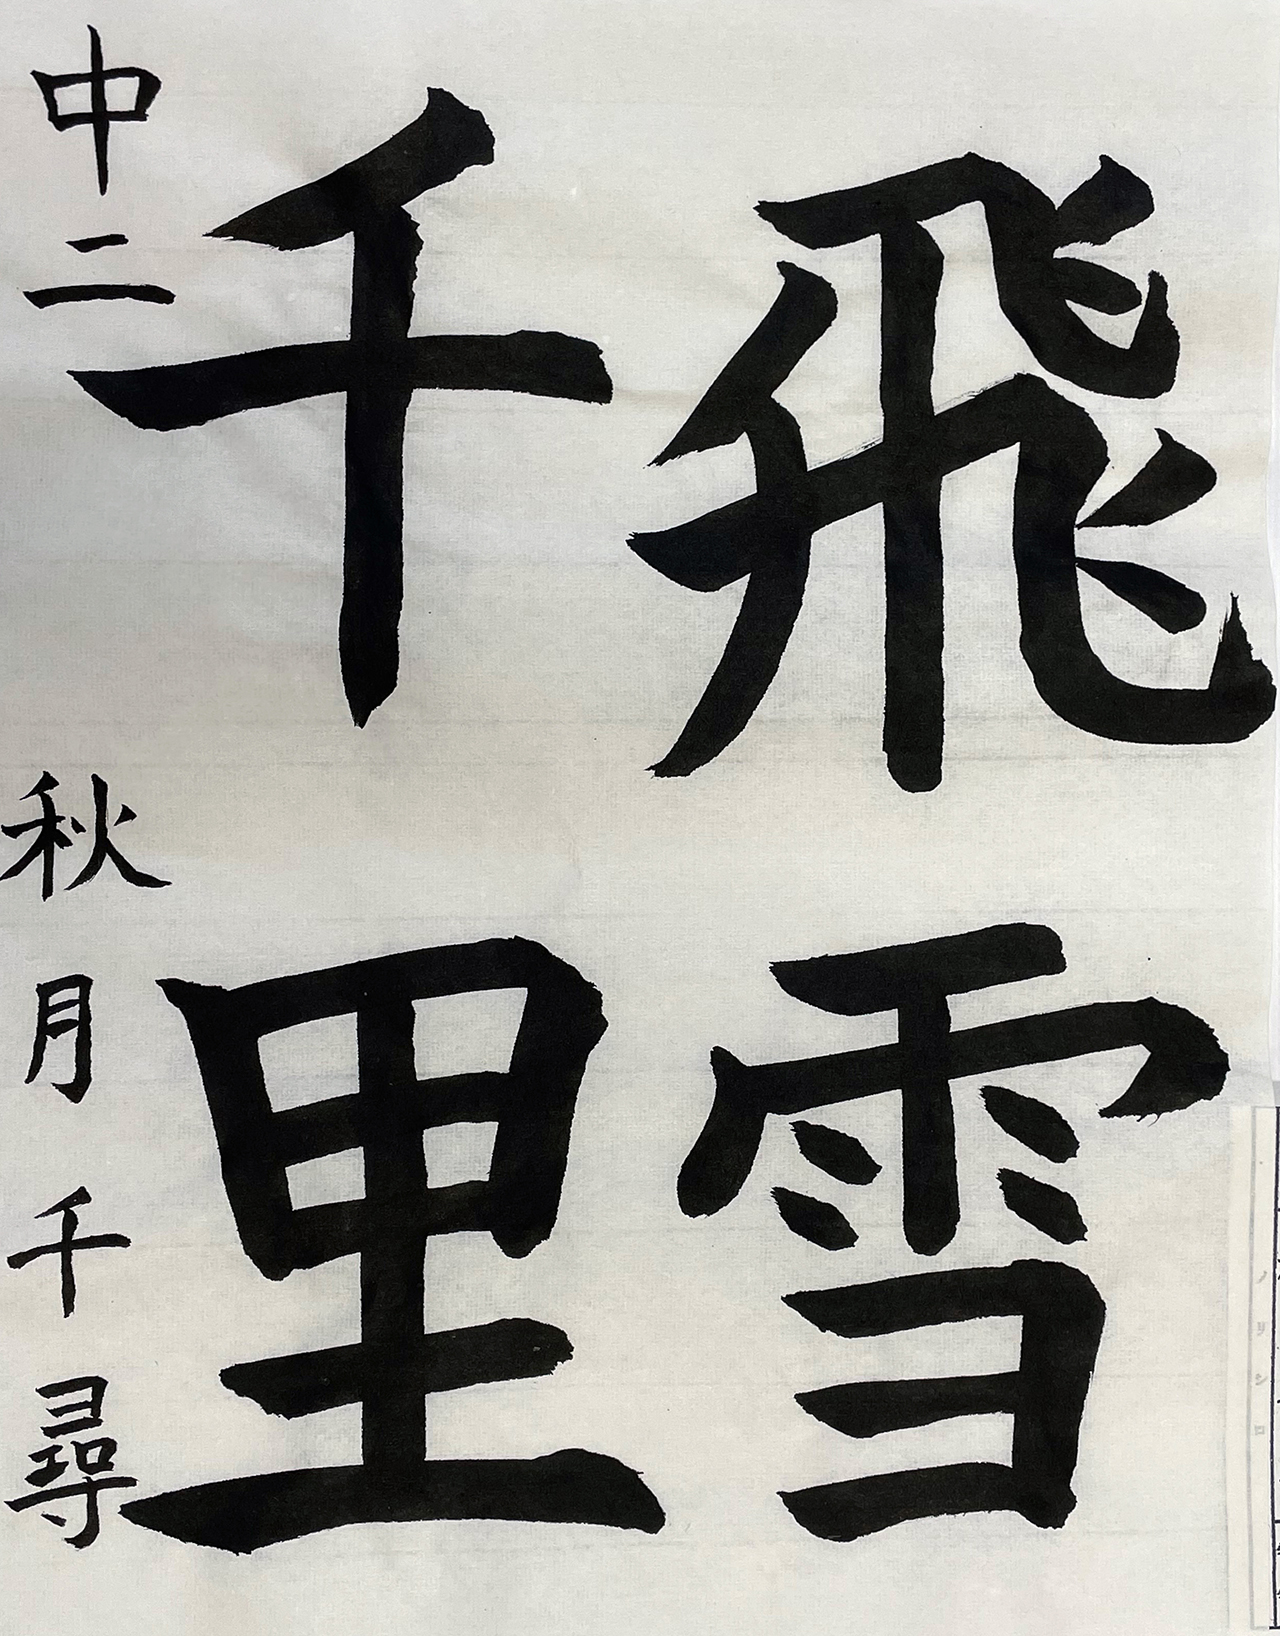 飛雪
千里
中二 秋月千尋